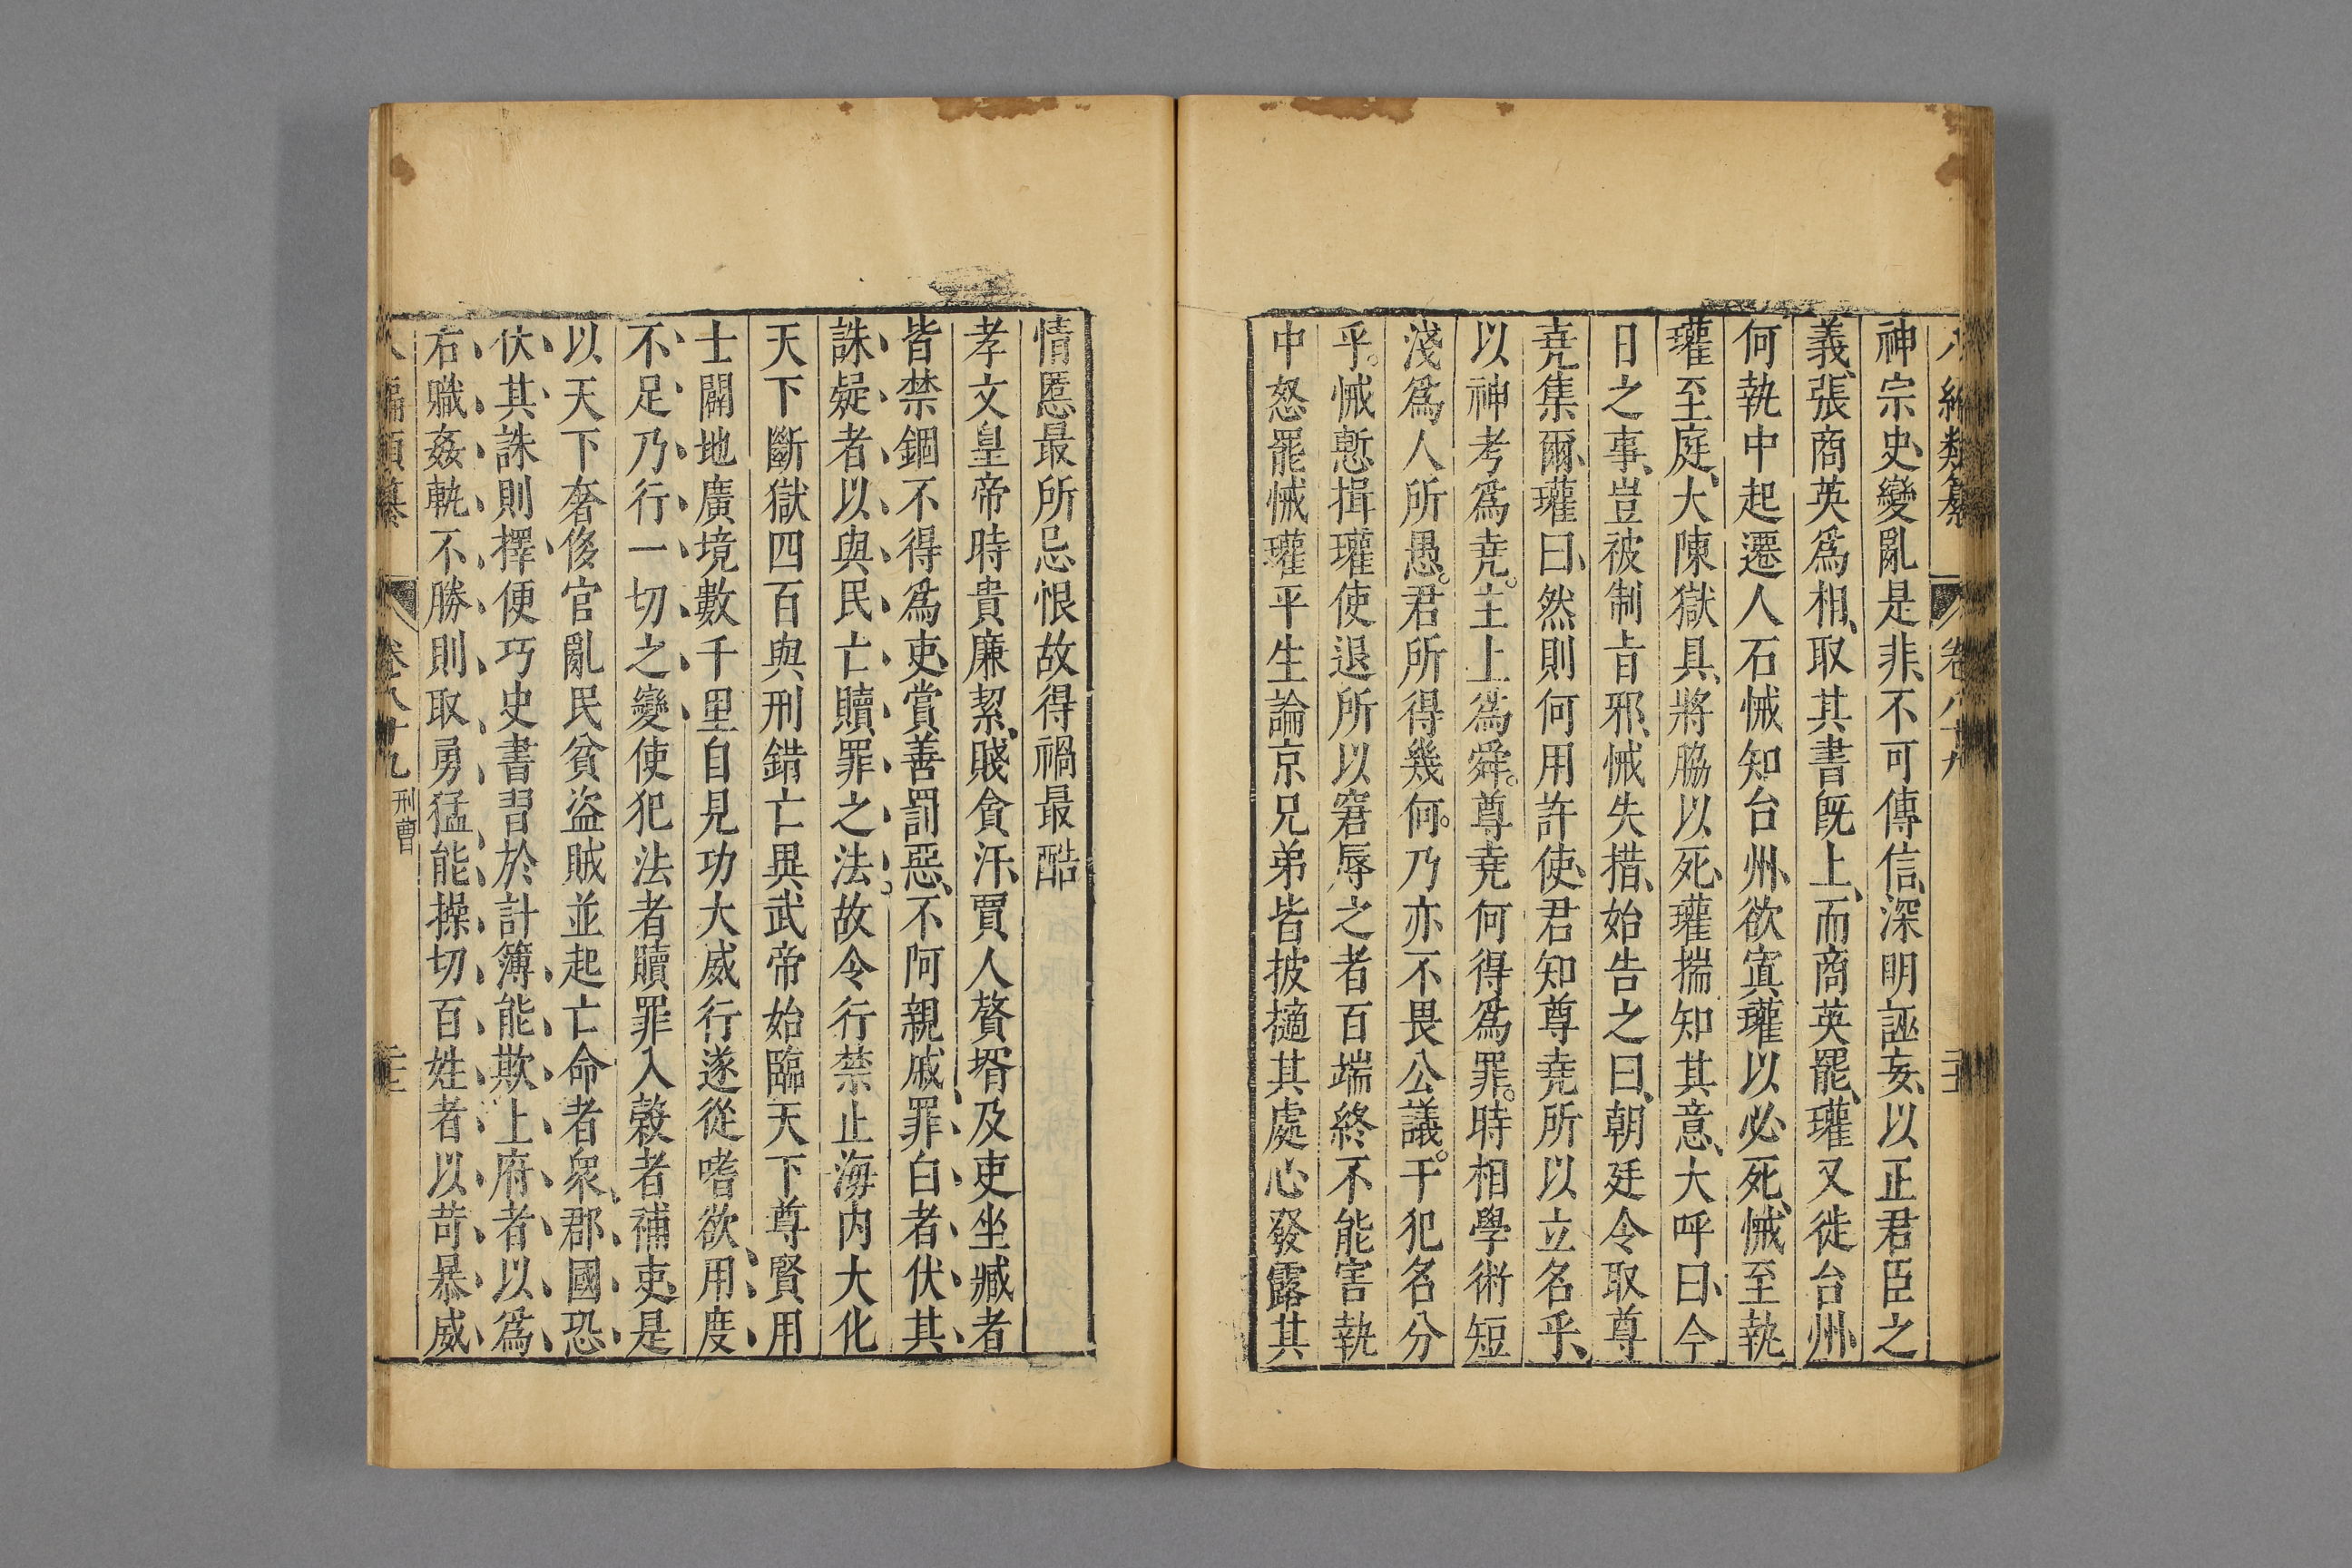 神宗史變亂是非、不可傳信、深明誣妄、以正君臣之
義、張商英爲相、取其書旣上、而商英罷、瓘又徙台州、
何執中起遷人石悈知台州、欲寘瓘以必死、悈至執
瓘至庭、大陳獄具、將脇以死、瓘揣知其意、大呼曰、今
日之事、豈被制旨邪、悈失措、始告之曰、朝廷令取尊
堯集爾、瓘曰、然則何用許使、君知尊堯所以立名乎、
以神考爲堯。主上爲舜。尊堯何得爲罪。時相學術短
淺爲人所愚。君所得幾何。乃亦不畏公議。干犯名分
乎。悈慙揖瓘使退所以窘辱之者百端終不能害執
中怒罷悈瓘平生論京兄弟皆披擿其處心發露其
情慝最所忌恨故得禍最酷
孝文皇帝時貴廉絜、賤貪汙、賈人贅壻及吏坐臧者
皆禁錮不得爲吏、賞善罰惡、不阿親戚、罪白者伏其
誅疑者以與民亡贖罪之法。故令行禁止海内大化
天下斷獄四百與刑錯亡異武帝始臨天下尊賢用
士闢地廣境數千里自見功大威行遂從嗜欲用度
不足乃行一切之變使犯法者贖罪入穀者補吏是
以天下奢侈官亂民貧盜賊並起亡命者衆、郡國恐
伏其誅則擇便巧史書習於計簿能欺上府者以爲
右職姦軌不勝則取勇猛能操切百姓者以苛暴威
卷八十九 刑曹